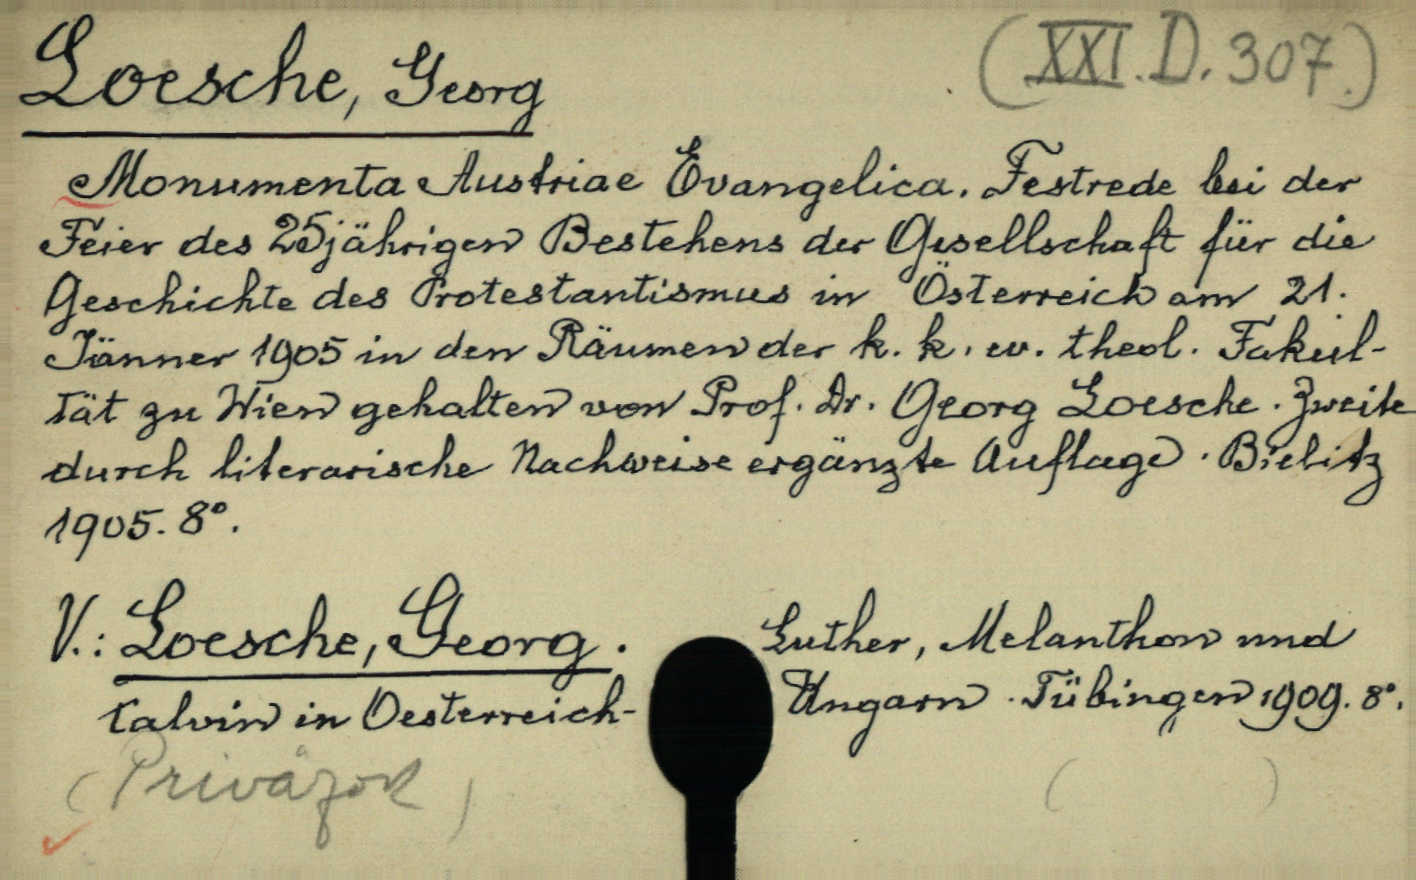 Loesche, Georg
(XXI.D.307.)
Monumenta Austriae Evangelica. Festrede bei der
Feier des 25jährigen Bestehens der Gesellschaft für die
Geschichte des Protestantismus in Österreich am 21.
Jänner 1905 in den Räumen der k. k. ev. theol. Fakul-
tät zu Wien gehalten von Prof. Dr. Georg Loesche. Zweite
durch literarische Nachweise ergänzte Auflage. Bielitz
1905. 8°.
V.: Loesche, Georg. Luther, Melanthon und
Calvin in Oesterreich- Ungarn. Tübingen 1909. 8°.